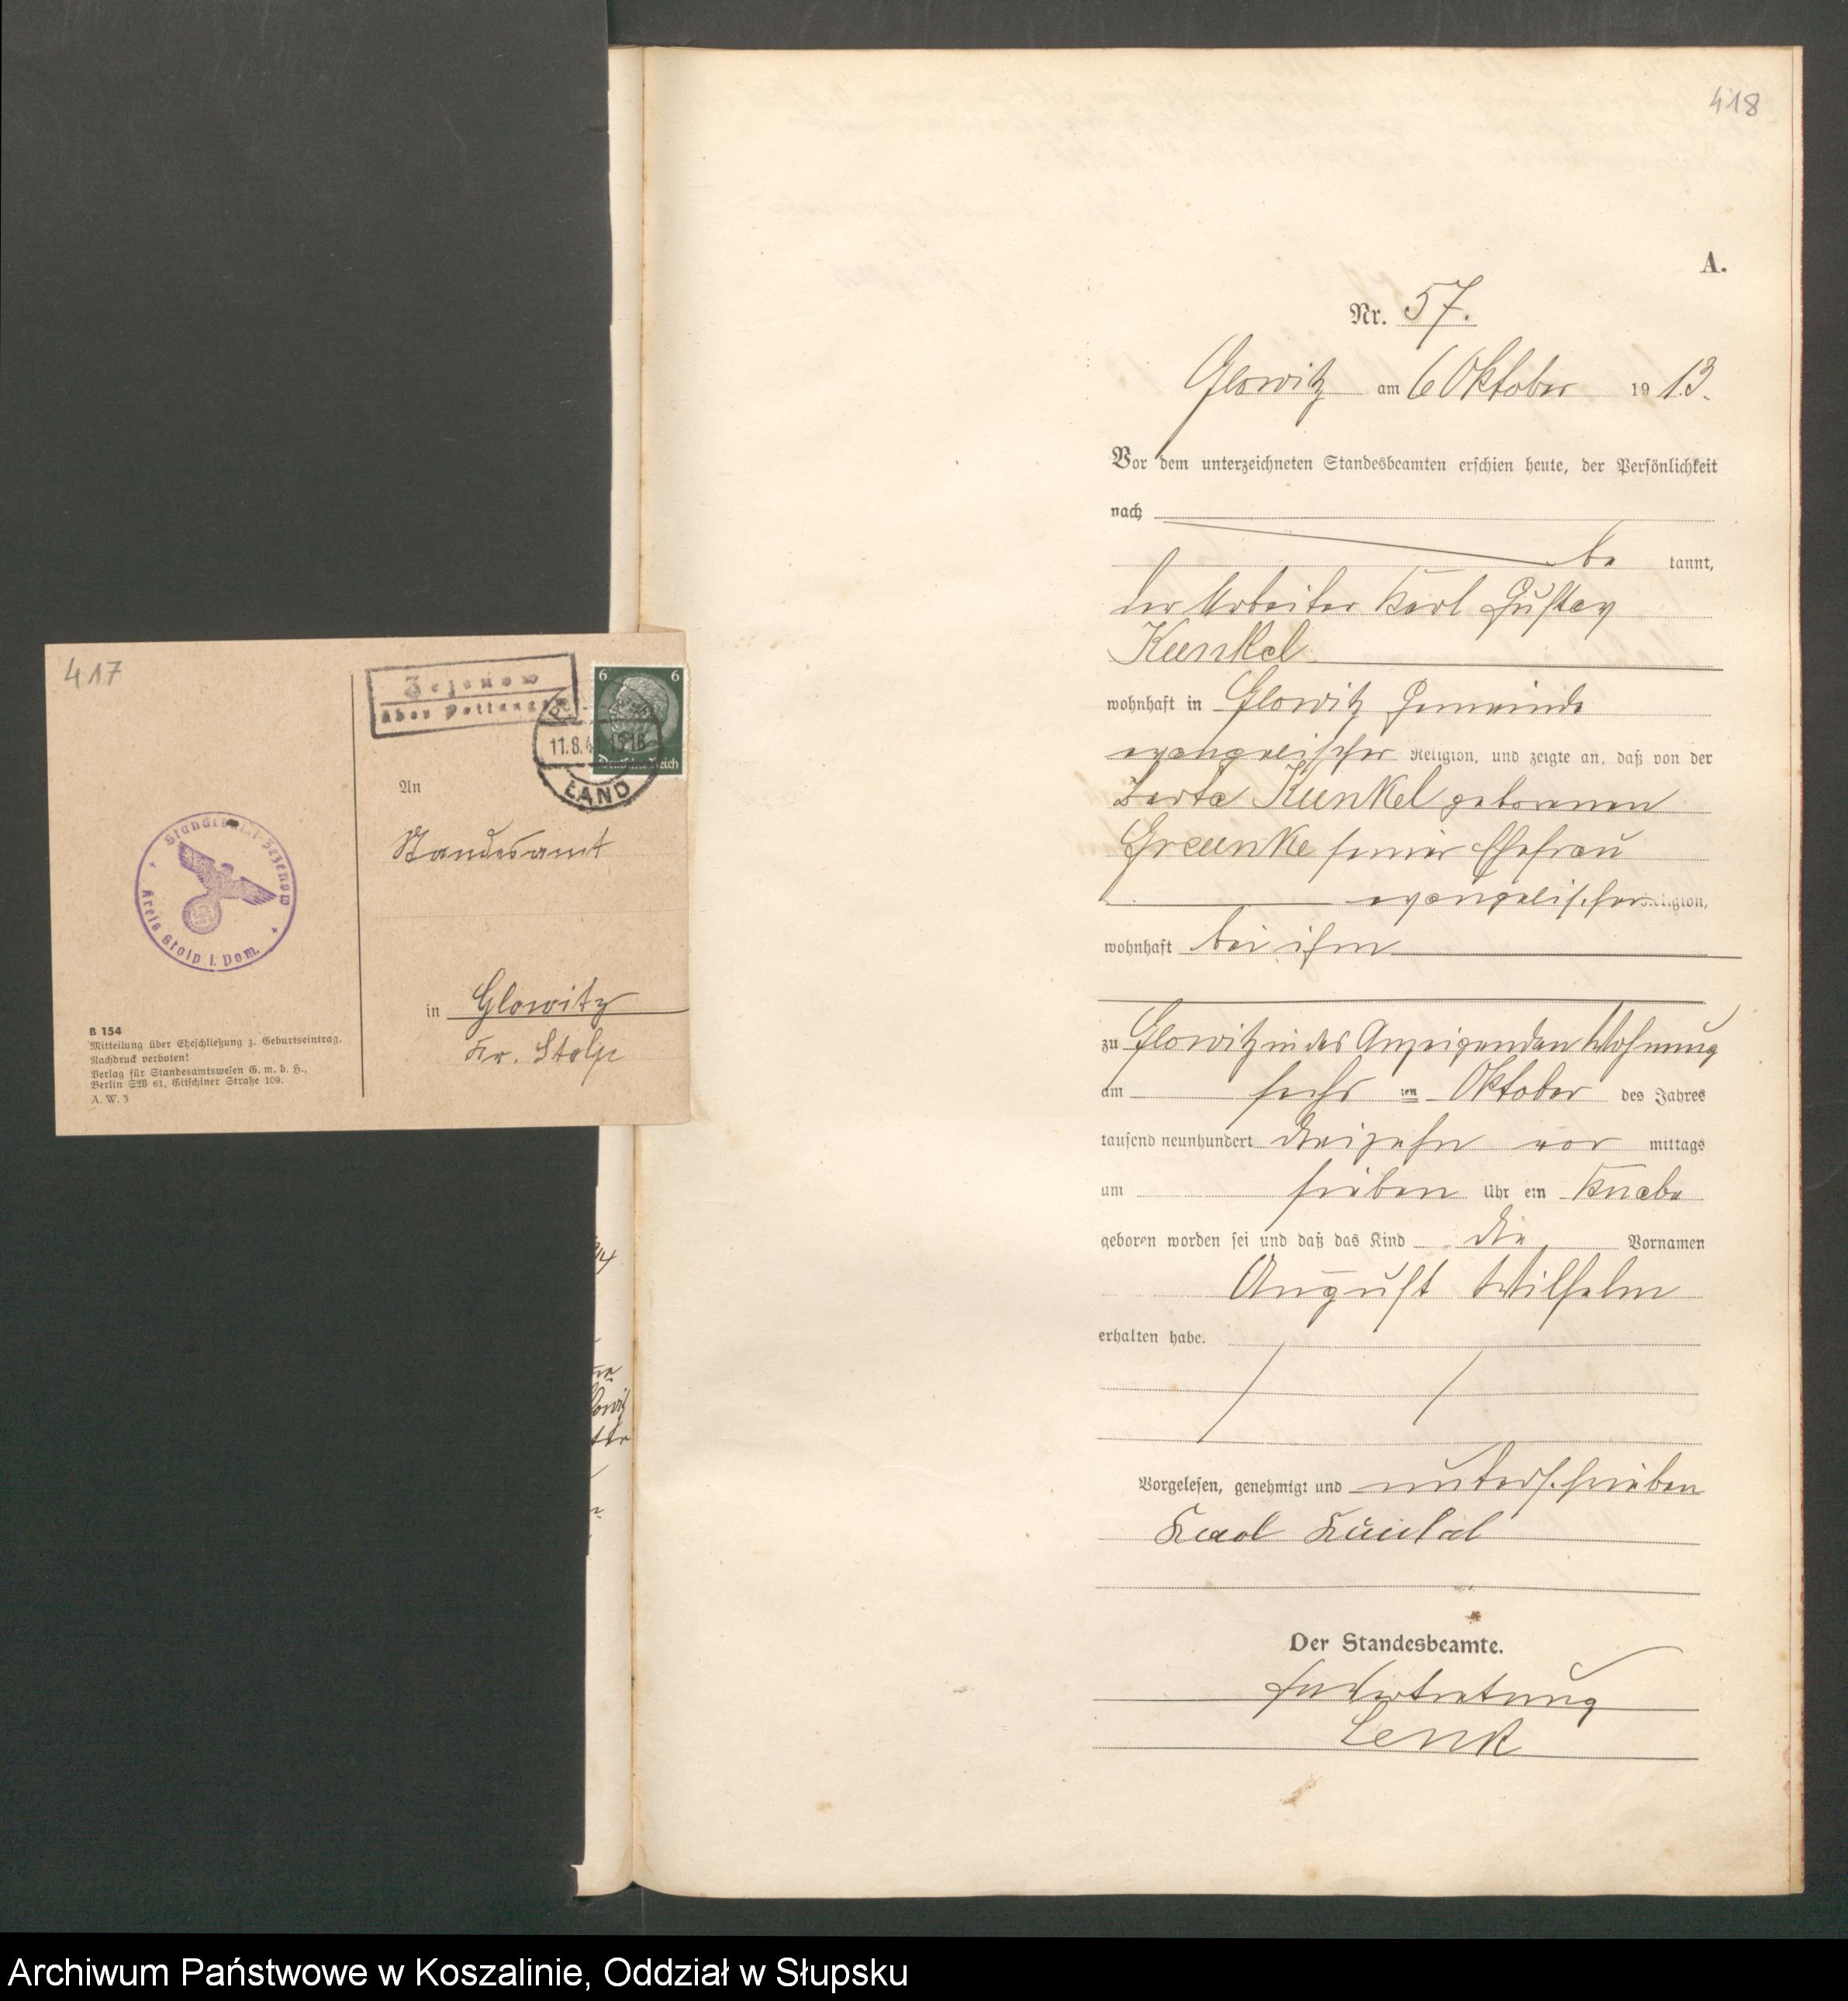 417
Zezenow
über Pottangow
6 6
Deutsches Reich
11.8.4
15-18
LAND
An
Standesamt
in Glowitz
Kr. Stolp
Standesamt Zezenow
Kreis Stolp i. Pom.
B 154
Mitteilung über Eheschließung z. Geburtseintrag.
Nachdruck verboten!
Verlag für Standesamtswesen G. m. b. H.,
Berlin SW 61, Gitschiner Straße 109.
A. W. 3
418
A.
Nr. 57.
Glowitz am 6 Oktober 1913.
Vor dem unterzeichneten Standesbeamten erschien heute, der Persönlichkeit
nach
be kannt,
der Arbeiter Karl Gustav
Kunkel
wohnhaft in Glowitz Gemeinde
evangelischer Religion, und zeigte an, daß von der
Berta Kunkel geborenen
Graunke seiner Ehefrau
evangelischer Religion,
wohnhaft bei ihm
zu Glowitz in des Anzeigenden Wohnung
am sechs ten Oktober des Jahres
tausend neunhundert dreizehn vor mittags
um sieben Uhr ein Knabe
geboren worden sei und daß das Kind die Vornamen
August Wilhelm
erhalten habe.
Vorgelesen, genehmigt und unterschrieben
Karl Kunkel
Der Standesbeamte.
In Vertretung
Lenk
Archiwum Państwowe w Koszalinie, Oddział w Słupsku